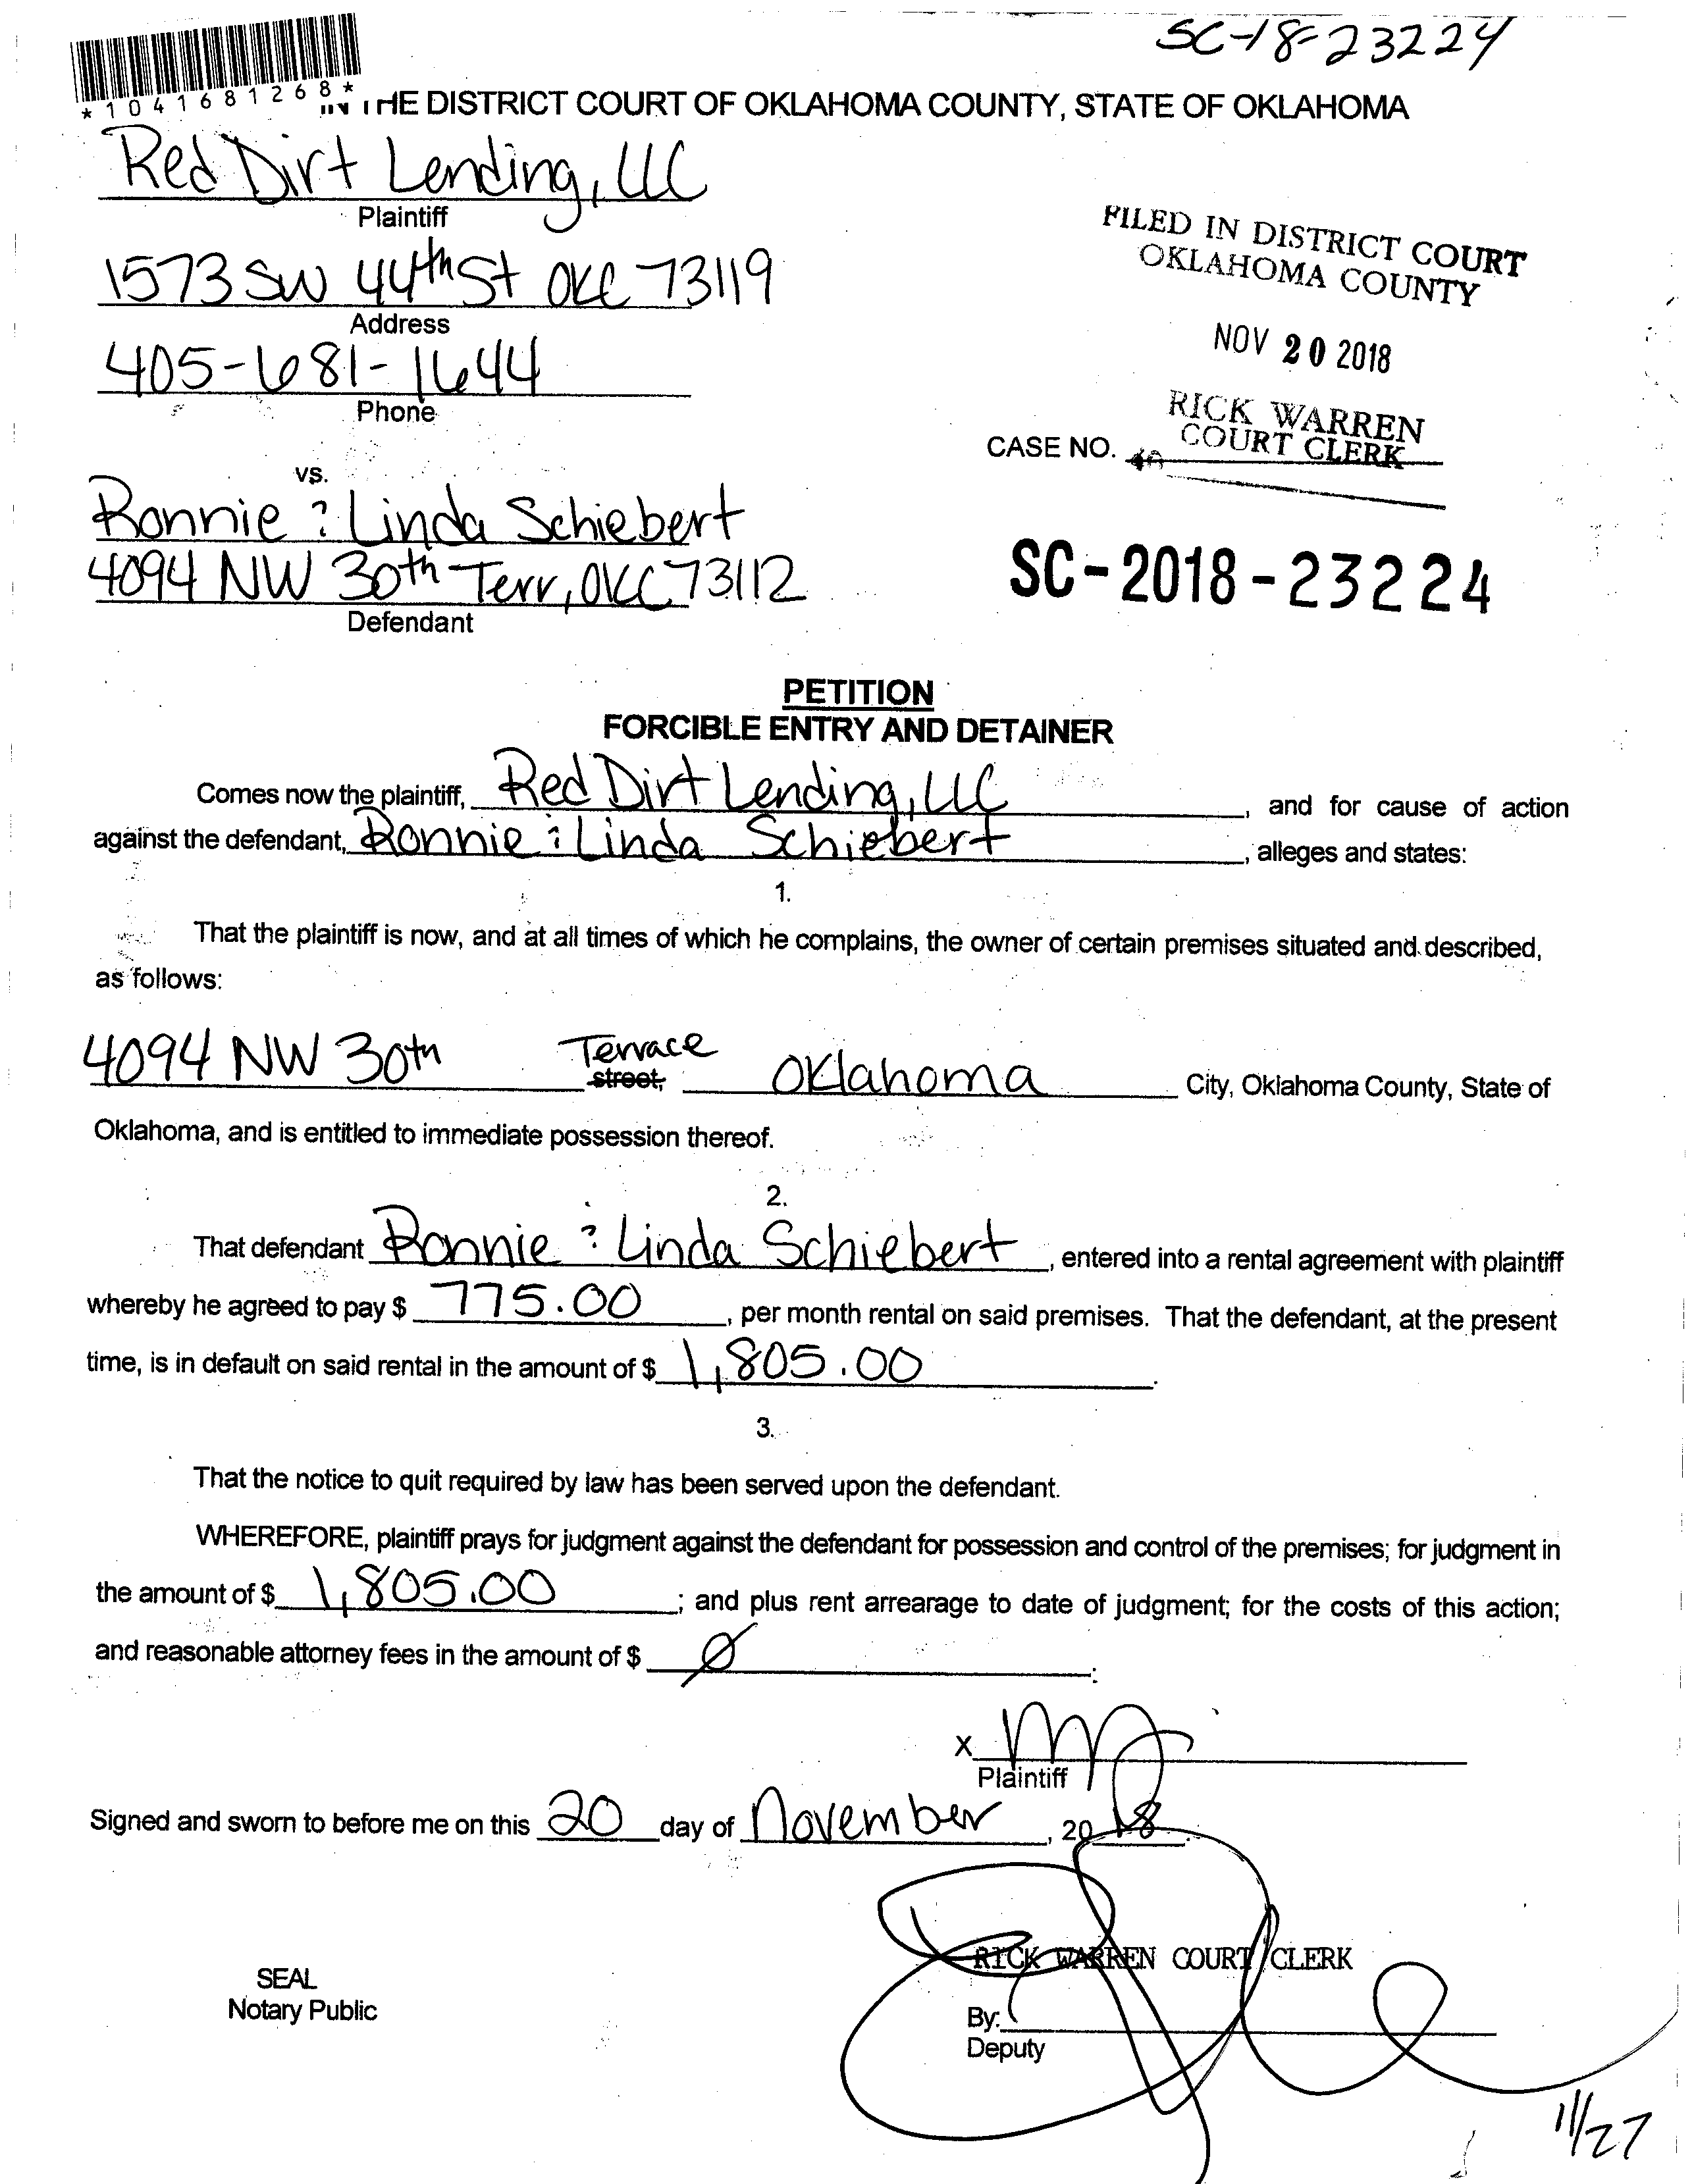 SC-18-23224
*1041681268*
IN THE DISTRICT COURT OF OKLAHOMA COUNTY, STATE OF OKLAHOMA
Red Dirt Lending, LLC
Plaintiff
1573 SW 44th St OKC 73119
Address
405-681-1644
Phone
FILED IN DISTRICT COURT
OKLAHOMA COUNTY
NOV 20 2018
RICK WARREN
COURT CLERK
CASE NO.
vs.
Ronnie & Linda Schiebert
4094 NW 30th Terr, OKC 73112
Defendant
SC-2018-23224
PETITION
FORCIBLE ENTRY AND DETAINER
Comes now the plaintiff, Red Dirt Lending, LLC, and for cause of action
against the defendant, Ronnie & Linda Schiebert, alleges and states:
1.
That the plaintiff is now, and at all times of which he complains, the owner of certain premises situated and described,
as follows:
4094 NW 30th Terrace street, Oklahoma City, Oklahoma County, State of
Oklahoma, and is entitled to immediate possession thereof.
2.
That defendant Ronnie & Linda Schiebert, entered into a rental agreement with plaintiff
whereby he agreed to pay $ 775.00, per month rental on said premises. That the defendant, at the present
time, is in default on said rental in the amount of $ 1,805.00.
3.
That the notice to quit required by law has been served upon the defendant.
WHEREFORE, plaintiff prays for judgment against the defendant for possession and control of the premises; for judgment in
the amount of $ 1,805.00; and plus rent arrearage to date of judgment; for the costs of this action;
and reasonable attorney fees in the amount of $ Ø.
X
Plaintiff
Signed and sworn to before me on this 20 day of November, 2018.
RICK WARREN COURT CLERK
SEAL
Notary Public
By:
Deputy
11/27